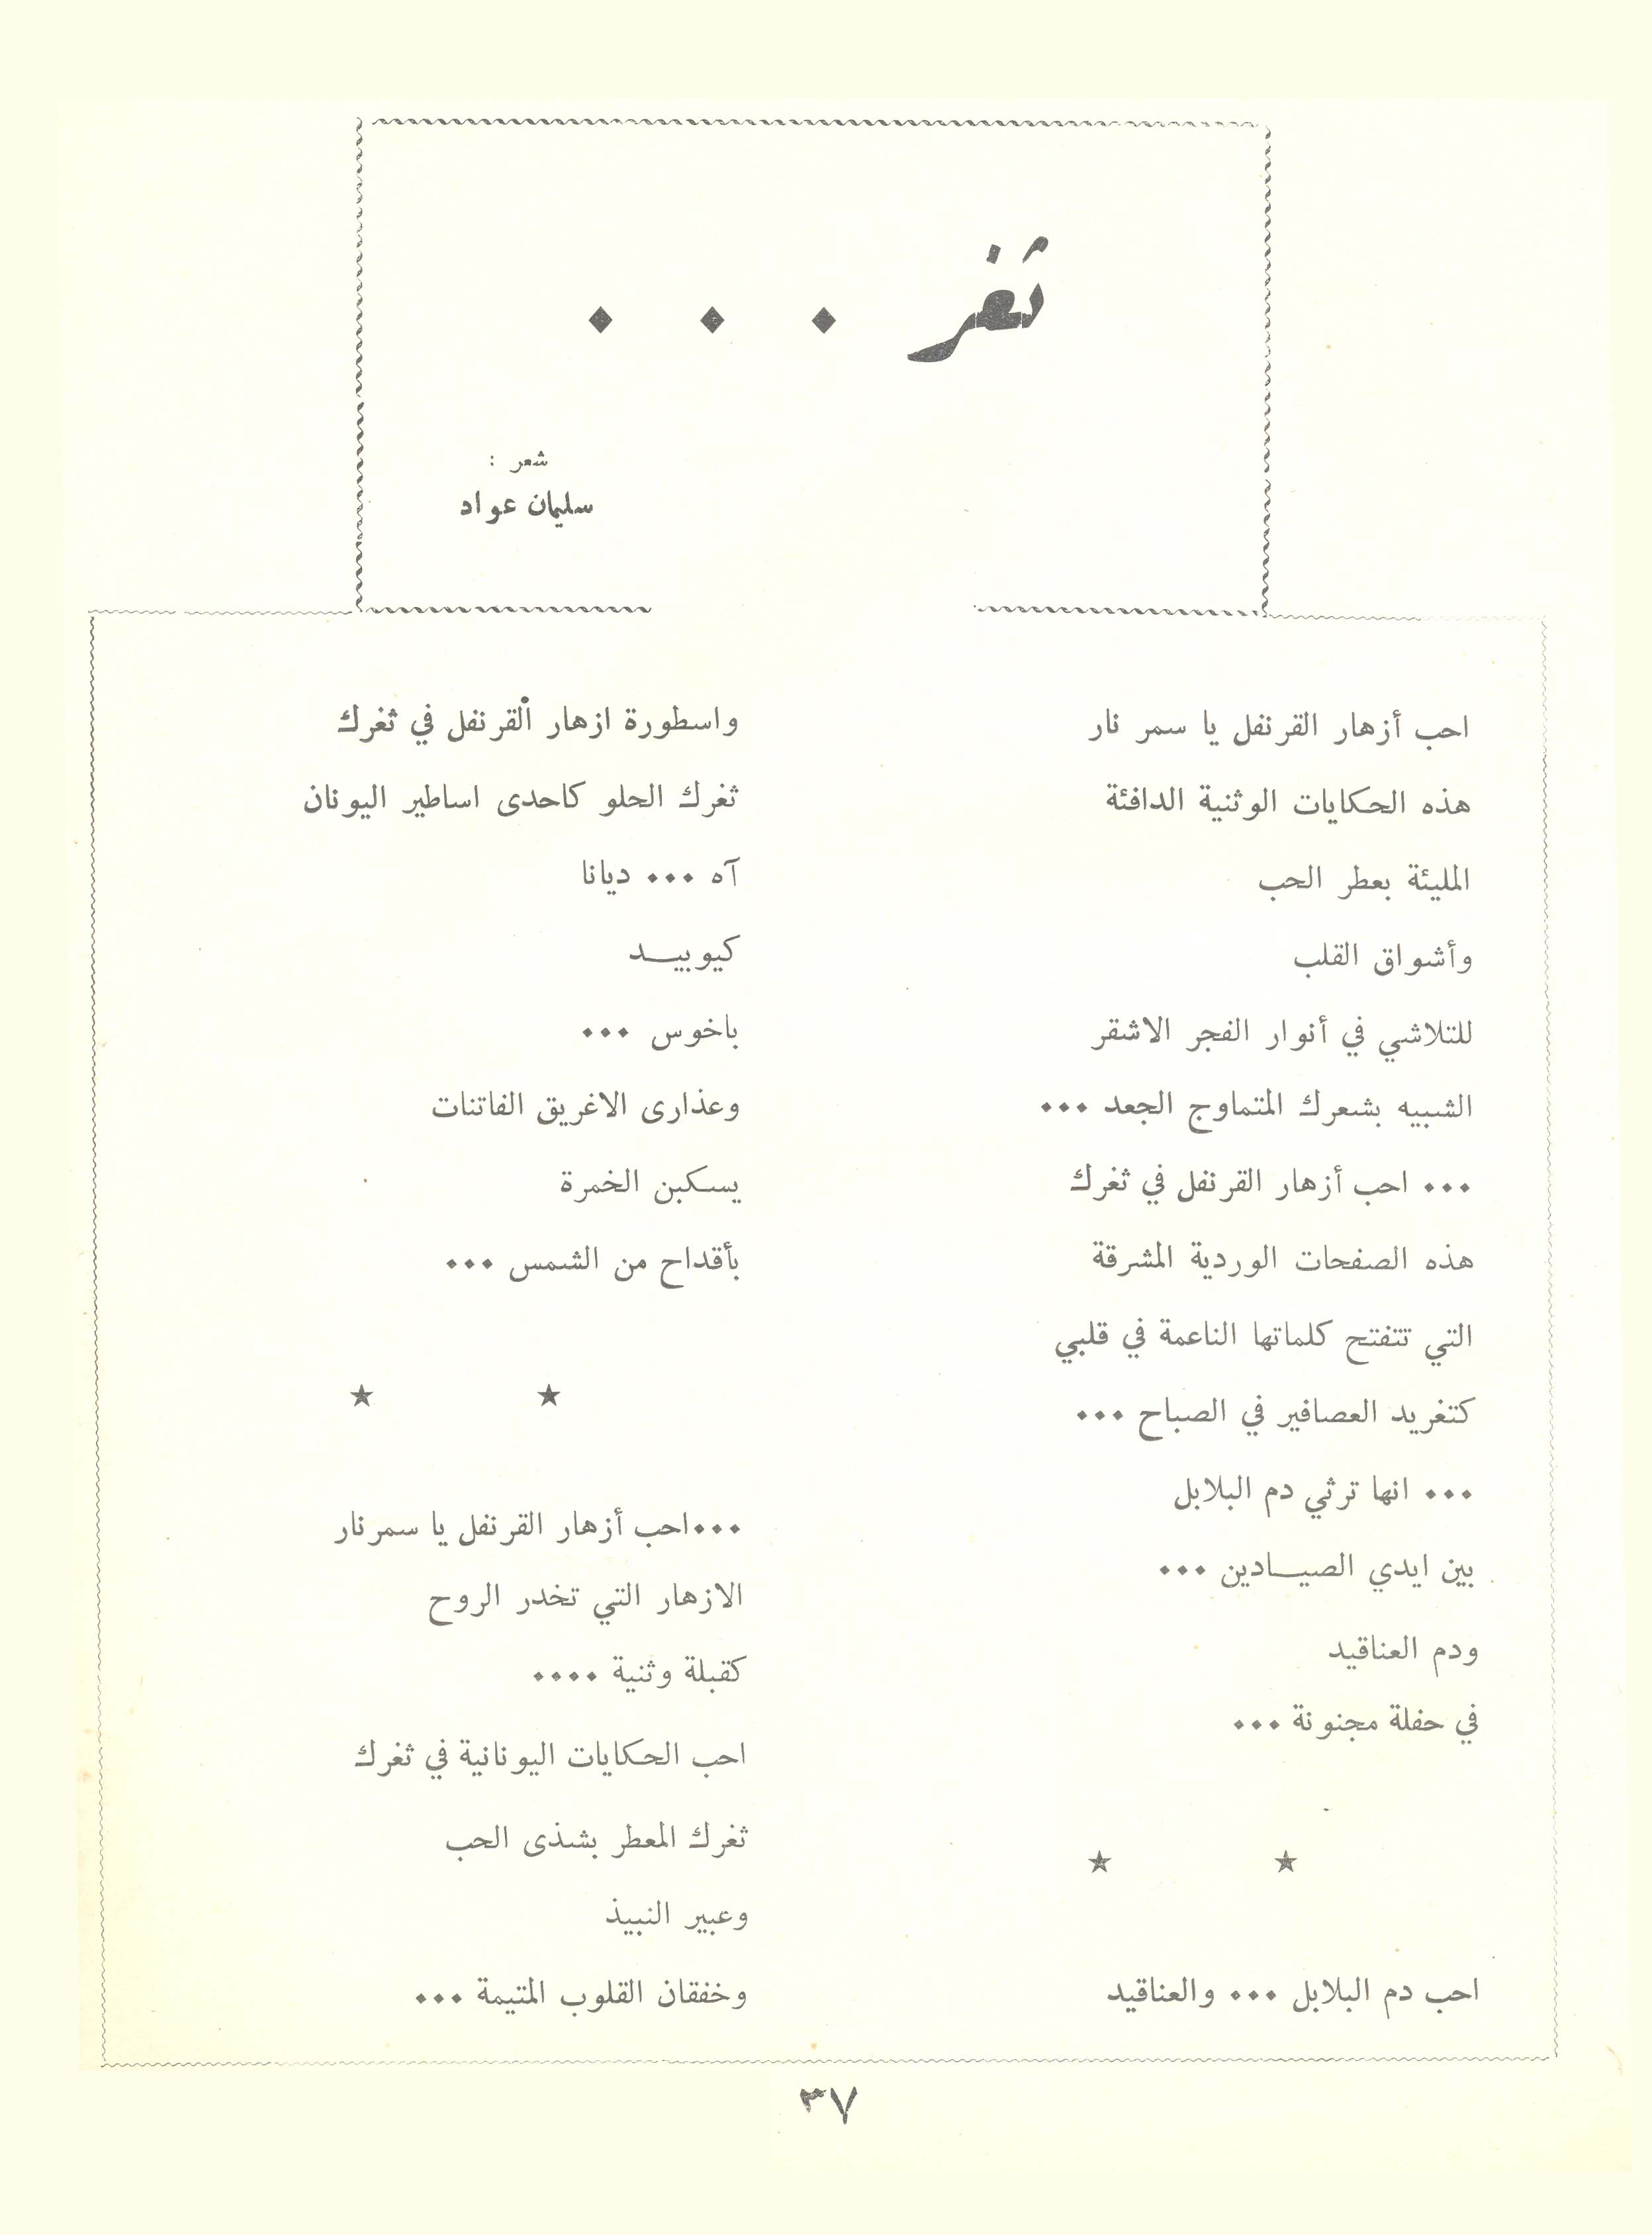 ثغر . . .
شعر :
سليمان عواد
احب أزهار القرنفل يا سمر نار
هذه الحكايات الوثنية الدافئة
المليئة بعطر الحب
وأشواق القلب
للتلاشي في أنوار الفجر الاشقر
الشبيه بشعرك المتماوج الجعد ...
... احب أزهار القرنفل في ثغرك
هذه الصفحات الوردية المشرقة
التي تتفتح كلماتها الناعمة في قلبي
كتغريد العصافير في الصباح ...
... انها ترثي دم البلابل
بين ايدي الصيــادين ...
ودم العناقيد
في حفلة مجنونة ...
★ ★
احب دم البلابل ... والعناقيد
واسطورة ازهار القرنفل في ثغرك
ثغرك الحلو كاحدى اساطير اليونان
آه ... ديانا
كيوبيــد
باخوس ...
وعذارى الاغريق الفاتنات
يسكبن الخمرة
بأقداح من الشمس ...
★ ★
...احب أزهار القرنفل يا سمرنار
الازهار التي تخدر الروح
كقبلة وثنية ....
احب الحكايات اليونانية في ثغرك
ثغرك المعطر بشذى الحب
وعبير النبيذ
وخفقان القلوب المتيمة ...
٣٧